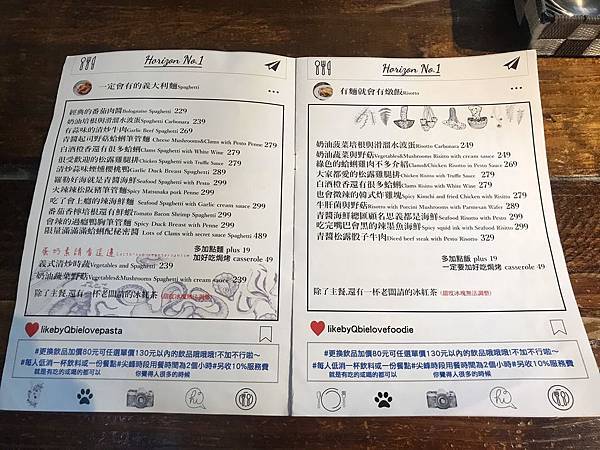 Horizon No.1
一定會有的義大利麵Spaghetti
經典的番茄肉醬Bolognaise Spaghetti 229
奶油培根與滑溜水波蛋Spaghetti Carbonara 239
有蒜味的清炒牛肉Garlic Beef Spaghetti 269
青醬起司野菇蛤蜊筆管麵 Cheese Mushrooms&Clams with Pesto Penne 279
白酒橙香還有很多蛤蜊Clams Spaghetti with White Wine 279
很受歡迎的松露雞腿排Chicken Spaghetti with Truffle Sauce 279
清炒蒜味煙燻櫻桃鴨Garlic Duck Breast Spaghetti 289
羅勒好海就是青醬海鮮Seafood Spaghetti with Pesto 299
火辣辣松阪豬筆管麵Spicy Matsusaka pork Penne 299
吃了會上癮的辣海鮮 Seafood Spaghetti with Garlic cream sauce 299
番茄香檸培根還有鮮蝦Tomato Bacon Shrimp Spaghetti 299
會辣的過癮鴨胸筆管麵 Spicy Duck Breast with Penne 299
限量滿滿滿蛤蜊配秘密醬 Lots of Clams with secret sauce Spaghetti 489
蛋奶素請看這邊
多加點麵 plus 19
加好吃焗烤 casserole 49
義式清炒時蔬Vegetables and Spaghetti 239
奶油蔬菜野菇Vegetables&Mushrooms Spaghetti with cream sauce 239
除了主餐,還有一杯老闆請的冰紅茶 (甜度冰塊無法調整)
likebyQbielovepasta
#更換飲品加價80元可任選單價130元以內的飲品哦哦哦!不加不行啦～
#每人低消一杯飲料或一份餐點#尖峰時段用餐時間為2個小時#另收10%服務費
就是有吃的或喝的都可以 你覺得人很多的時候
hi
Horizon No.1
有麵就會有燉飯Risotto
奶油菠菜培根與滑溜水波蛋Risotto Carbonara 249
奶油蔬菜與野菇Vegetables&Mushrooms Risitto with cream sauce 249
綠色的蛤蜊雞肉不多介紹Clams&Chicken Risotto in Pesto Sauce 269
大家都愛的松露雞腿排Chicken Risitto with Truffle Sauce 279
白酒橙香還有很多蛤蜊Clams Risitto with White Wine 279
也會微辣的韓式炸雞塊Spicy Kimchi and fried Chicken with Risitto 279
牛肝菌與野菇Risotto with Porcini Mushrooms and Parmesan Wafer 289
青醬海鮮總匯顧名思義都是海鮮Seafood Risotto with Pesto 299
吃完嘴巴會黑的辣墨魚海鮮Spicy squid ink Seafood Risitto 299
青醬松露骰子牛肉Diced beef steak with Pesto Risotto 329
多加點飯 plus 19
一定要加好吃焗烤 casserole 49
除了主餐,還有一杯老闆請的冰紅茶 (甜度冰塊無法調整)
likebyQbielovefoodie
#更換飲品加價80元可任選單價130元以內的飲品哦哦哦!不加不行啦～
#每人低消一杯飲料或一份餐點#尖峰時段用餐時間為2個小時#另收10%服務費
就是有吃的或喝的都可以 你覺得人很多的時候
hi